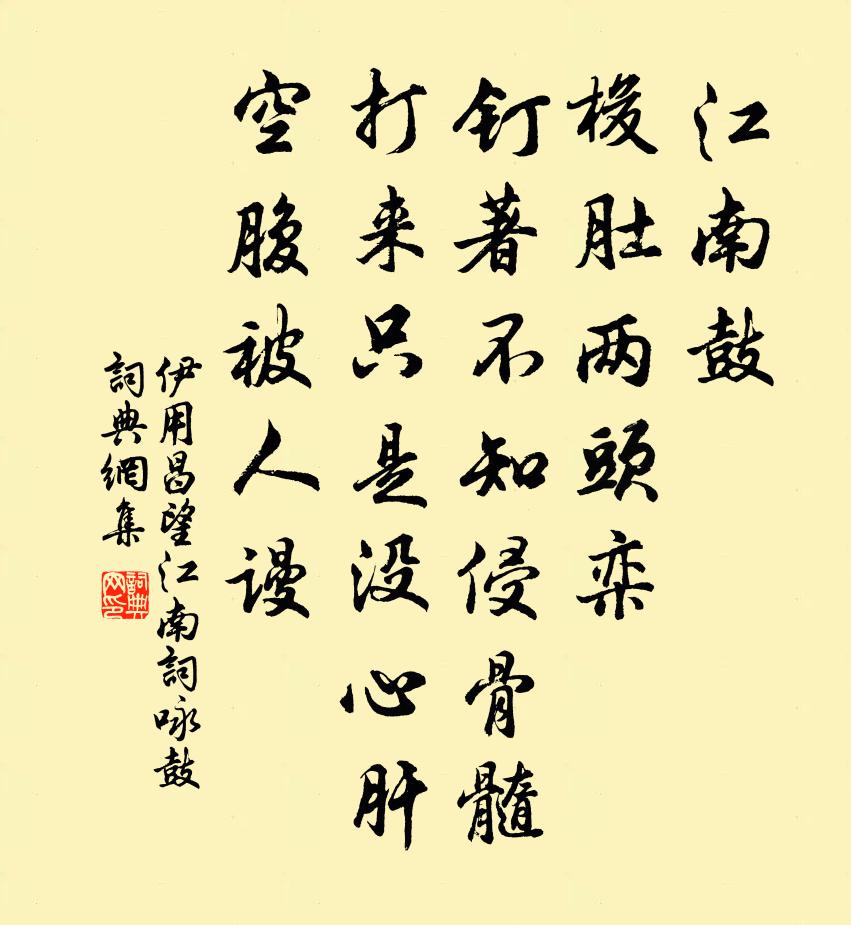 江南鼓
梭肚两頭栾
釘著不知侵骨髓
打来只是没心肝
空腹被人謾
伊用昌望江南詞咏鼓
詞典網集
詞典网印